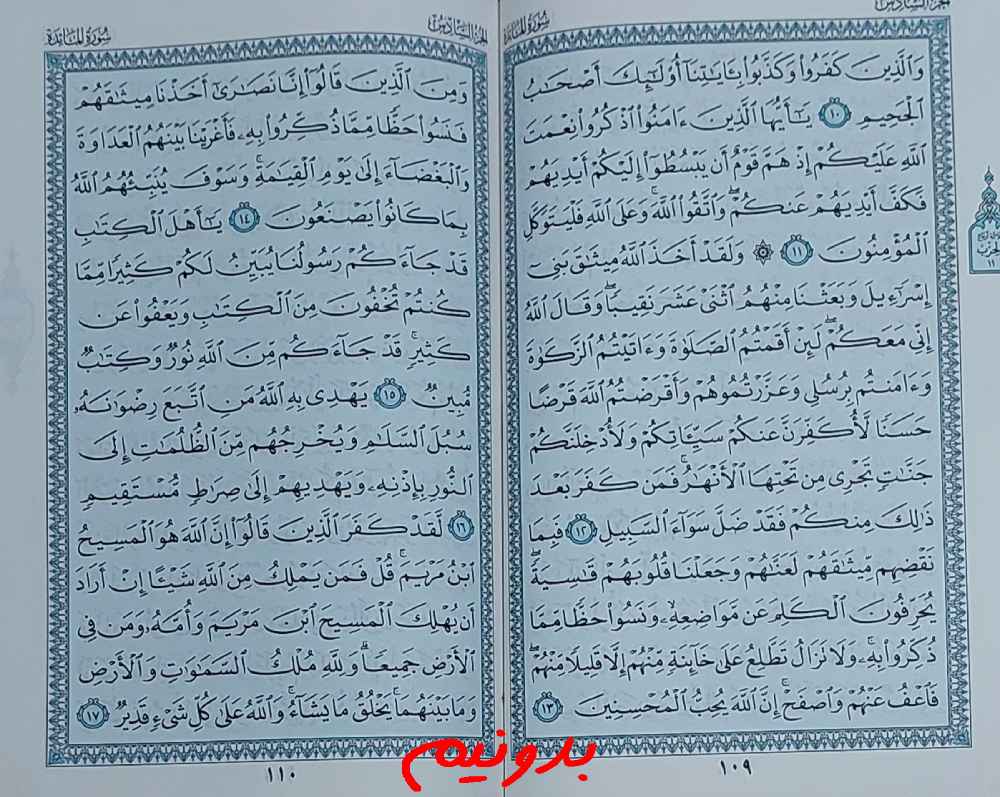 الجزء السادس
سورة المائدة
وَٱلَّذِينَ كَفَرُوا۟ وَكَذَّبُوا۟ بِـَٔايَـٰتِنَآ أُو۟لَـٰٓئِكَ أَصْحَـٰبُ
ٱلْجَحِيمِ ١٠ يَـٰٓأَيُّهَا ٱلَّذِينَ ءَامَنُوا۟ ٱذْكُرُوا۟ نِعْمَتَ
ٱللَّهِ عَلَيْكُمْ إِذْ هَمَّ قَوْمٌ أَن يَبْسُطُوٓا۟ إِلَيْكُمْ أَيْدِيَهُمْ
فَكَفَّ أَيْدِيَهُمْ عَنكُمْ ۖ وَٱتَّقُوا۟ ٱللَّهَ ۚ وَعَلَى ٱللَّهِ فَلْيَتَوَكَّلِ
ٱلْمُؤْمِنُونَ ١١ ۞ وَلَقَدْ أَخَذَ ٱللَّهُ مِيثَـٰقَ بَنِىٓ
إِسْرَٰٓءِيلَ وَبَعَثْنَا مِنْهُمُ ٱثْنَىْ عَشَرَ نَقِيبًا ۖ وَقَالَ ٱللَّهُ
إِنِّى مَعَكُمْ ۖ لَئِنْ أَقَمْتُمُ ٱلصَّلَوٰةَ وَءَاتَيْتُمُ ٱلزَّكَوٰةَ
وَءَامَنتُم بِرُسُلِى وَعَزَّرْتُمُوهُمْ وَأَقْرَضْتُمُ ٱللَّهَ قَرْضًا
حَسَنًا لَّأُكَفِّرَنَّ عَنكُمْ سَيِّـَٔاتِكُمْ وَلَأُدْخِلَنَّكُمْ
جَنَّـٰتٍ تَجْرِى مِن تَحْتِهَا ٱلْأَنْهَـٰرُ ۚ فَمَن كَفَرَ بَعْدَ
ذَٰلِكَ مِنكُمْ فَقَدْ ضَلَّ سَوَآءَ ٱلسَّبِيلِ ١٢ فَبِمَا
نَقْضِهِم مِّيثَـٰقَهُمْ لَعَنَّـٰهُمْ وَجَعَلْنَا قُلُوبَهُمْ قَـٰسِيَةً ۖ
يُحَرِّفُونَ ٱلْكَلِمَ عَن مَّوَاضِعِهِۦ ۙ وَنَسُوا۟ حَظًّا مِّمَّا
ذُكِّرُوا۟ بِهِۦ ۚ وَلَا تَزَالُ تَطَّلِعُ عَلَىٰ خَآئِنَةٍ مِّنْهُمْ إِلَّا قَلِيلًا مِّنْهُمْ ۖ
فَٱعْفُ عَنْهُمْ وَٱصْفَحْ ۚ إِنَّ ٱللَّهَ يُحِبُّ ٱلْمُحْسِنِينَ ١٣
١٠٩
الجزء السادس
سورة المائدة
وَمِنَ ٱلَّذِينَ قَالُوٓا۟ إِنَّا نَصَـٰرَىٰٓ أَخَذْنَا مِيثَـٰقَهُمْ
فَنَسُوا۟ حَظًّا مِّمَّا ذُكِّرُوا۟ بِهِۦ فَأَغْرَيْنَا بَيْنَهُمُ ٱلْعَدَاوَةَ
وَٱلْبَغْضَآءَ إِلَىٰ يَوْمِ ٱلْقِيَـٰمَةِ ۚ وَسَوْفَ يُنَبِّئُهُمُ ٱللَّهُ
بِمَا كَانُوا۟ يَصْنَعُونَ ١٤ يَـٰٓأَهْلَ ٱلْكِتَـٰبِ
قَدْ جَآءَكُمْ رَسُولُنَا يُبَيِّنُ لَكُمْ كَثِيرًا مِّمَّا
كُنتُمْ تُخْفُونَ مِنَ ٱلْكِتَـٰبِ وَيَعْفُوا۟ عَن
كَثِيرٍ ۚ قَدْ جَآءَكُم مِّنَ ٱللَّهِ نُورٌ وَكِتَـٰبٌ
مُّبِينٌ ١٥ يَهْدِى بِهِ ٱللَّهُ مَنِ ٱتَّبَعَ رِضْوَٰنَهُۥ
سُبُلَ ٱلسَّلَـٰمِ وَيُخْرِجُهُم مِّنَ ٱلظُّلُمَـٰتِ إِلَى
ٱلنُّورِ بِإِذْنِهِۦ وَيَهْدِيهِمْ إِلَىٰ صِرَٰطٍ مُّسْتَقِيمٍ
١٦ لَّقَدْ كَفَرَ ٱلَّذِينَ قَالُوٓا۟ إِنَّ ٱللَّهَ هُوَ ٱلْمَسِيحُ
ٱبْنُ مَرْيَمَ ۚ قُلْ فَمَن يَمْلِكُ مِنَ ٱللَّهِ شَيْـًٔا إِنْ أَرَادَ
أَن يُهْلِكَ ٱلْمَسِيحَ ٱبْنَ مَرْيَمَ وَأُمَّهُۥ وَمَن فِى
ٱلْأَرْضِ جَمِيعًا ۗ وَلِلَّهِ مُلْكُ ٱلسَّمَـٰوَٰتِ وَٱلْأَرْضِ
وَمَا بَيْنَهُمَا ۚ يَخْلُقُ مَا يَشَآءُ ۚ وَٱللَّهُ عَلَىٰ كُلِّ شَىْءٍ قَدِيرٌ ١٧
١١٠
بدونیم